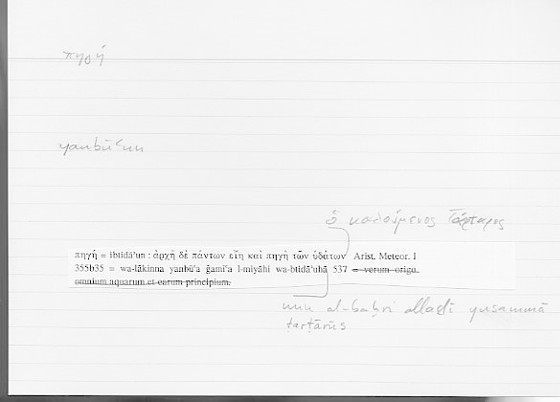 πηγή
yanbūʿun
ὁ καλούμενος Τάρταρος
πηγή = ibtidā'un : ἀρχὴ δὲ πάντων εἴη καὶ πηγὴ τῶν ὑδάτων Arist. Meteor. I
355b35 = wa-lākinna yanbū'a ǧamī'a l-miyāhi wa-btidā'uhā 537 = verum origo
omnium aquarum et earum principium.
min al-baḥri allaḏī yusammā
ṭarṭārūs